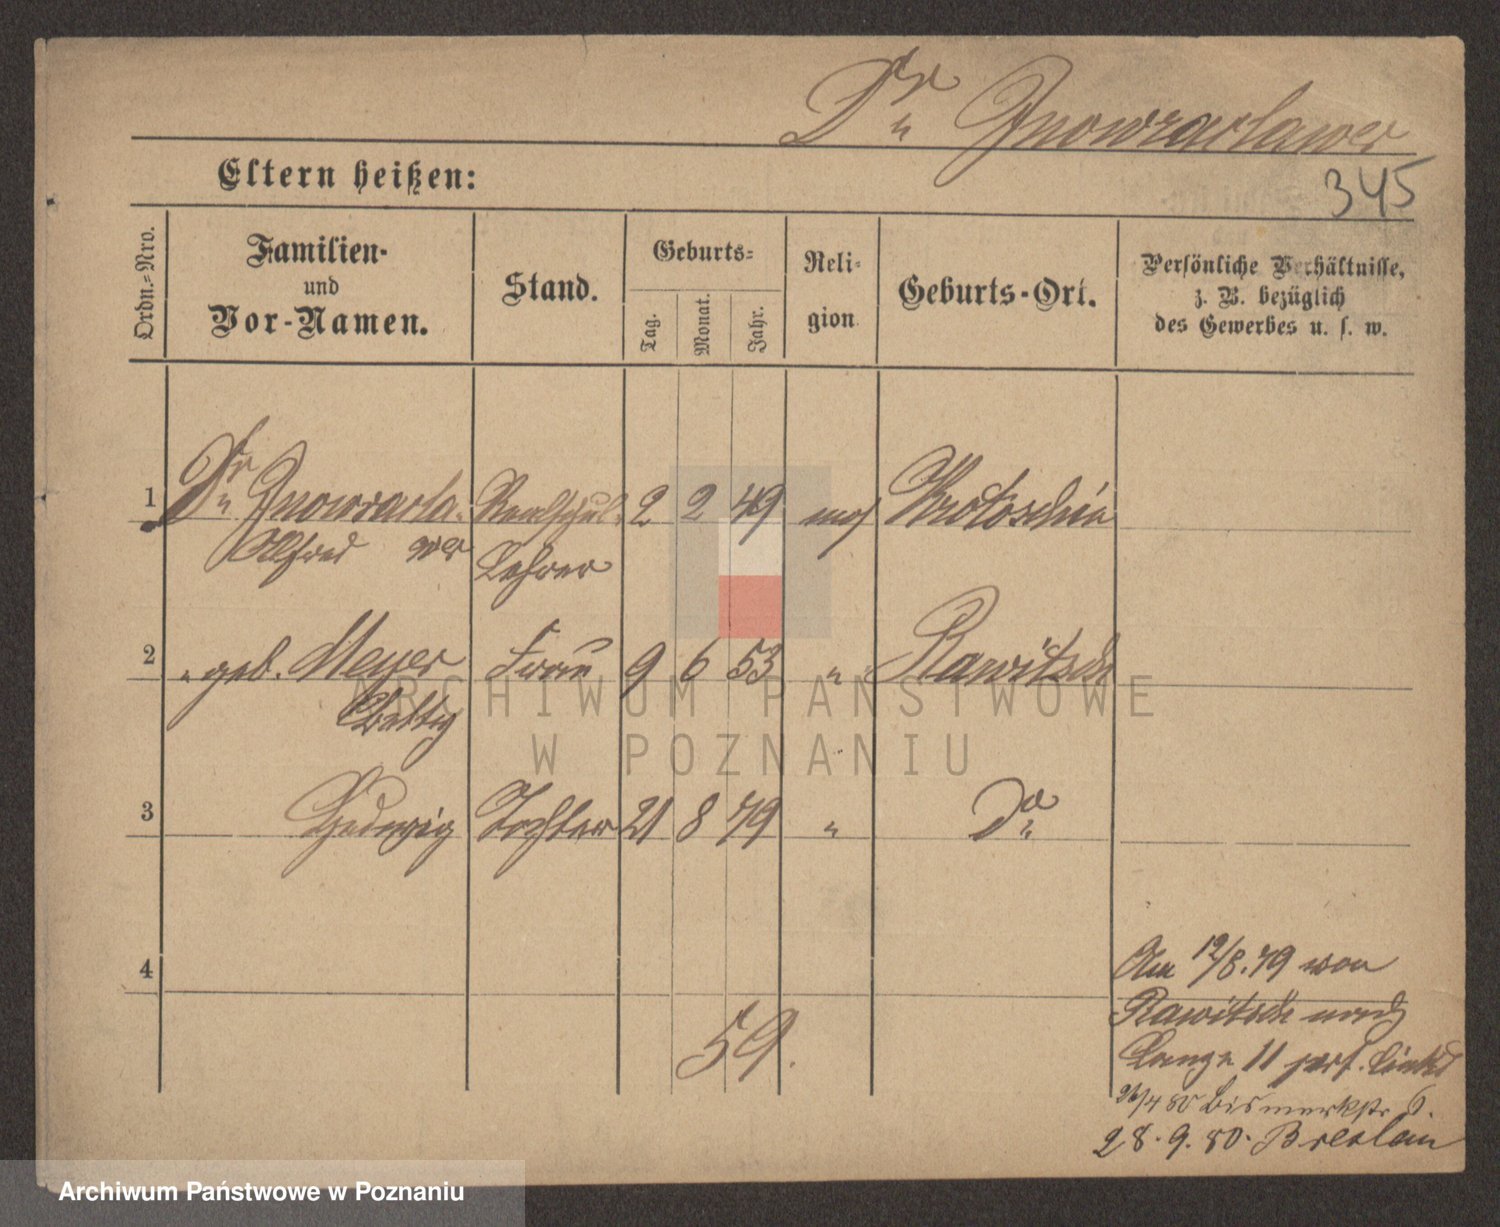 Dr. Inowraclawer
Eltern heißen:
345
Ordn.-Nro.
Familien-
und
Vor-Namen.
Stand.
Geburts-
Tag.
Monat.
Jahr.
Reli-
gion
Geburts-Ort.
Persönliche Verhältnisse,
z. B. bezüglich
des Gewerbes u. s. w.
1 Dr. Inowracla- Realschul- 2 2 49 mos Krotoschin
Alfred wer Lehrer
2 " geb. Meyer Frau 9 6 53 " Rawitsch
Betty
3 Hedwig Tochter 21 8 79 " Do
4
Am 12/8.79 von
Rawitsch nach
Lange 11 part. links
59.
26/4 80 Bismarkstr 6.
28.9.80. Breslau
ARCHIWUM PAŃSTWOWE
W POZNANIU
Archiwum Państwowe w Poznaniu